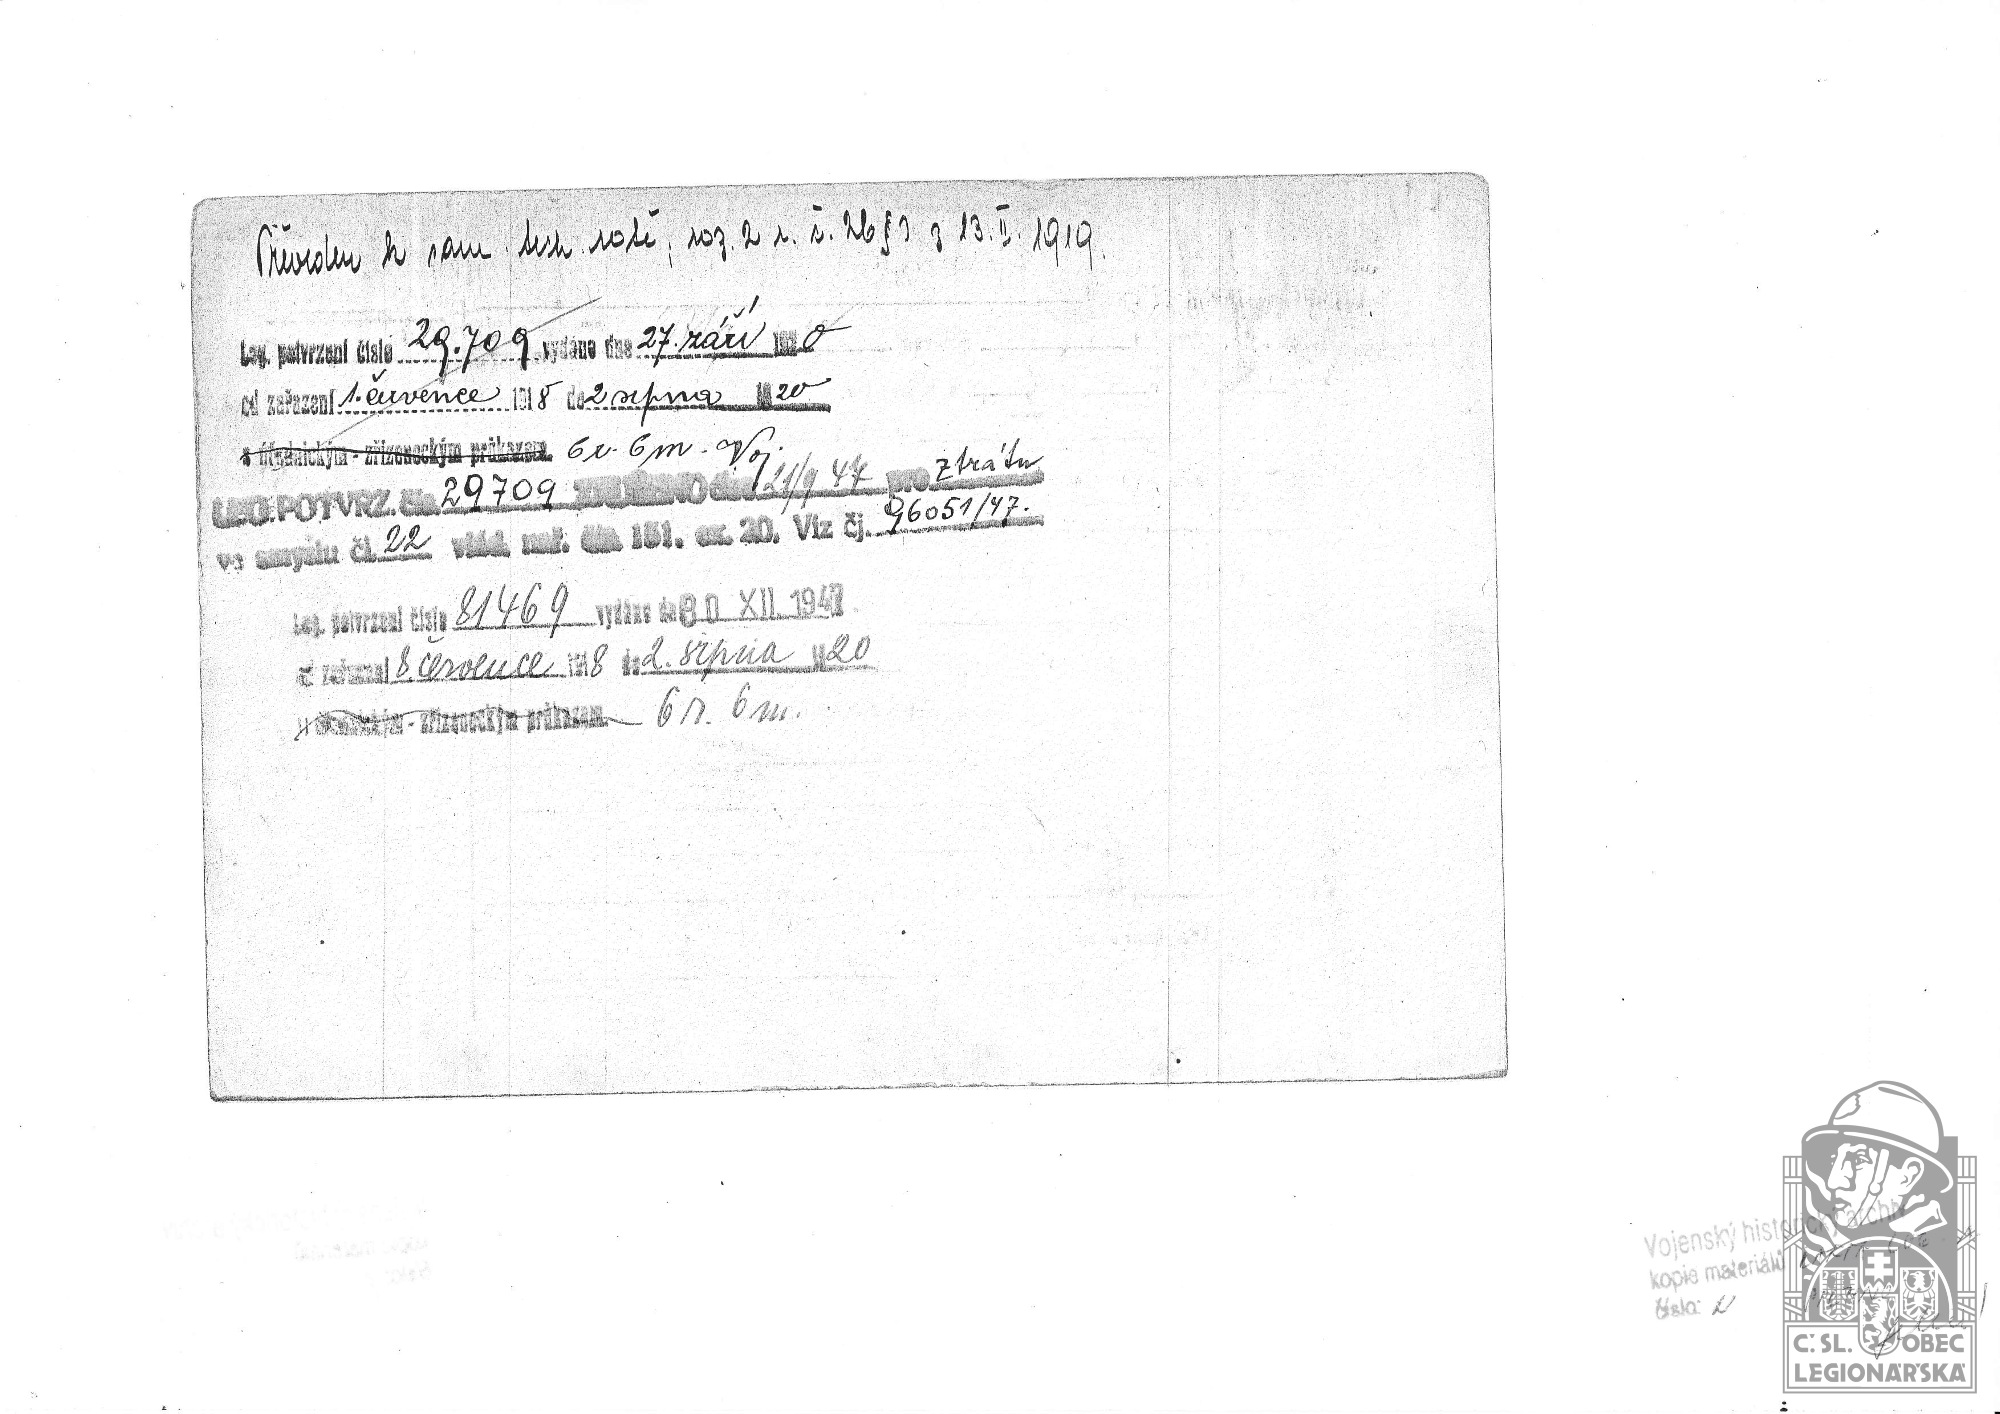 Převeden k sam. tech. rotě, roz. 2 s. č. 26§3 z 13.II. 1919.
Leg. potvrzení číslo 29.709 vydáno dne 27. září 1920
od zařazení 1. července 1918 do 2 srpna 1920
s úřednickým - zřízeneckým průkazem. 6 r. 6 m. Voj.
LEG. POTVRZ. čís. 29709 ZRUŠENO dne 21/9 47 pro ztrátu
ve smyslu čl. 22 vlád. nař. čís. 151. ex. 20. Viz čj. 96051/47.
Leg. potvrzení číslo 81469 vydáno dne 30 XII. 1947
od zařazení 8. července 1918 do 2. srpna 1920
s úřednickým - zřízeneckým průkazem. 6 r. 6 m.
Vojenský historický archiv
kopie materiálů
číslo:
Č. SL. OBEC
LEGIONÁŘSKÁ